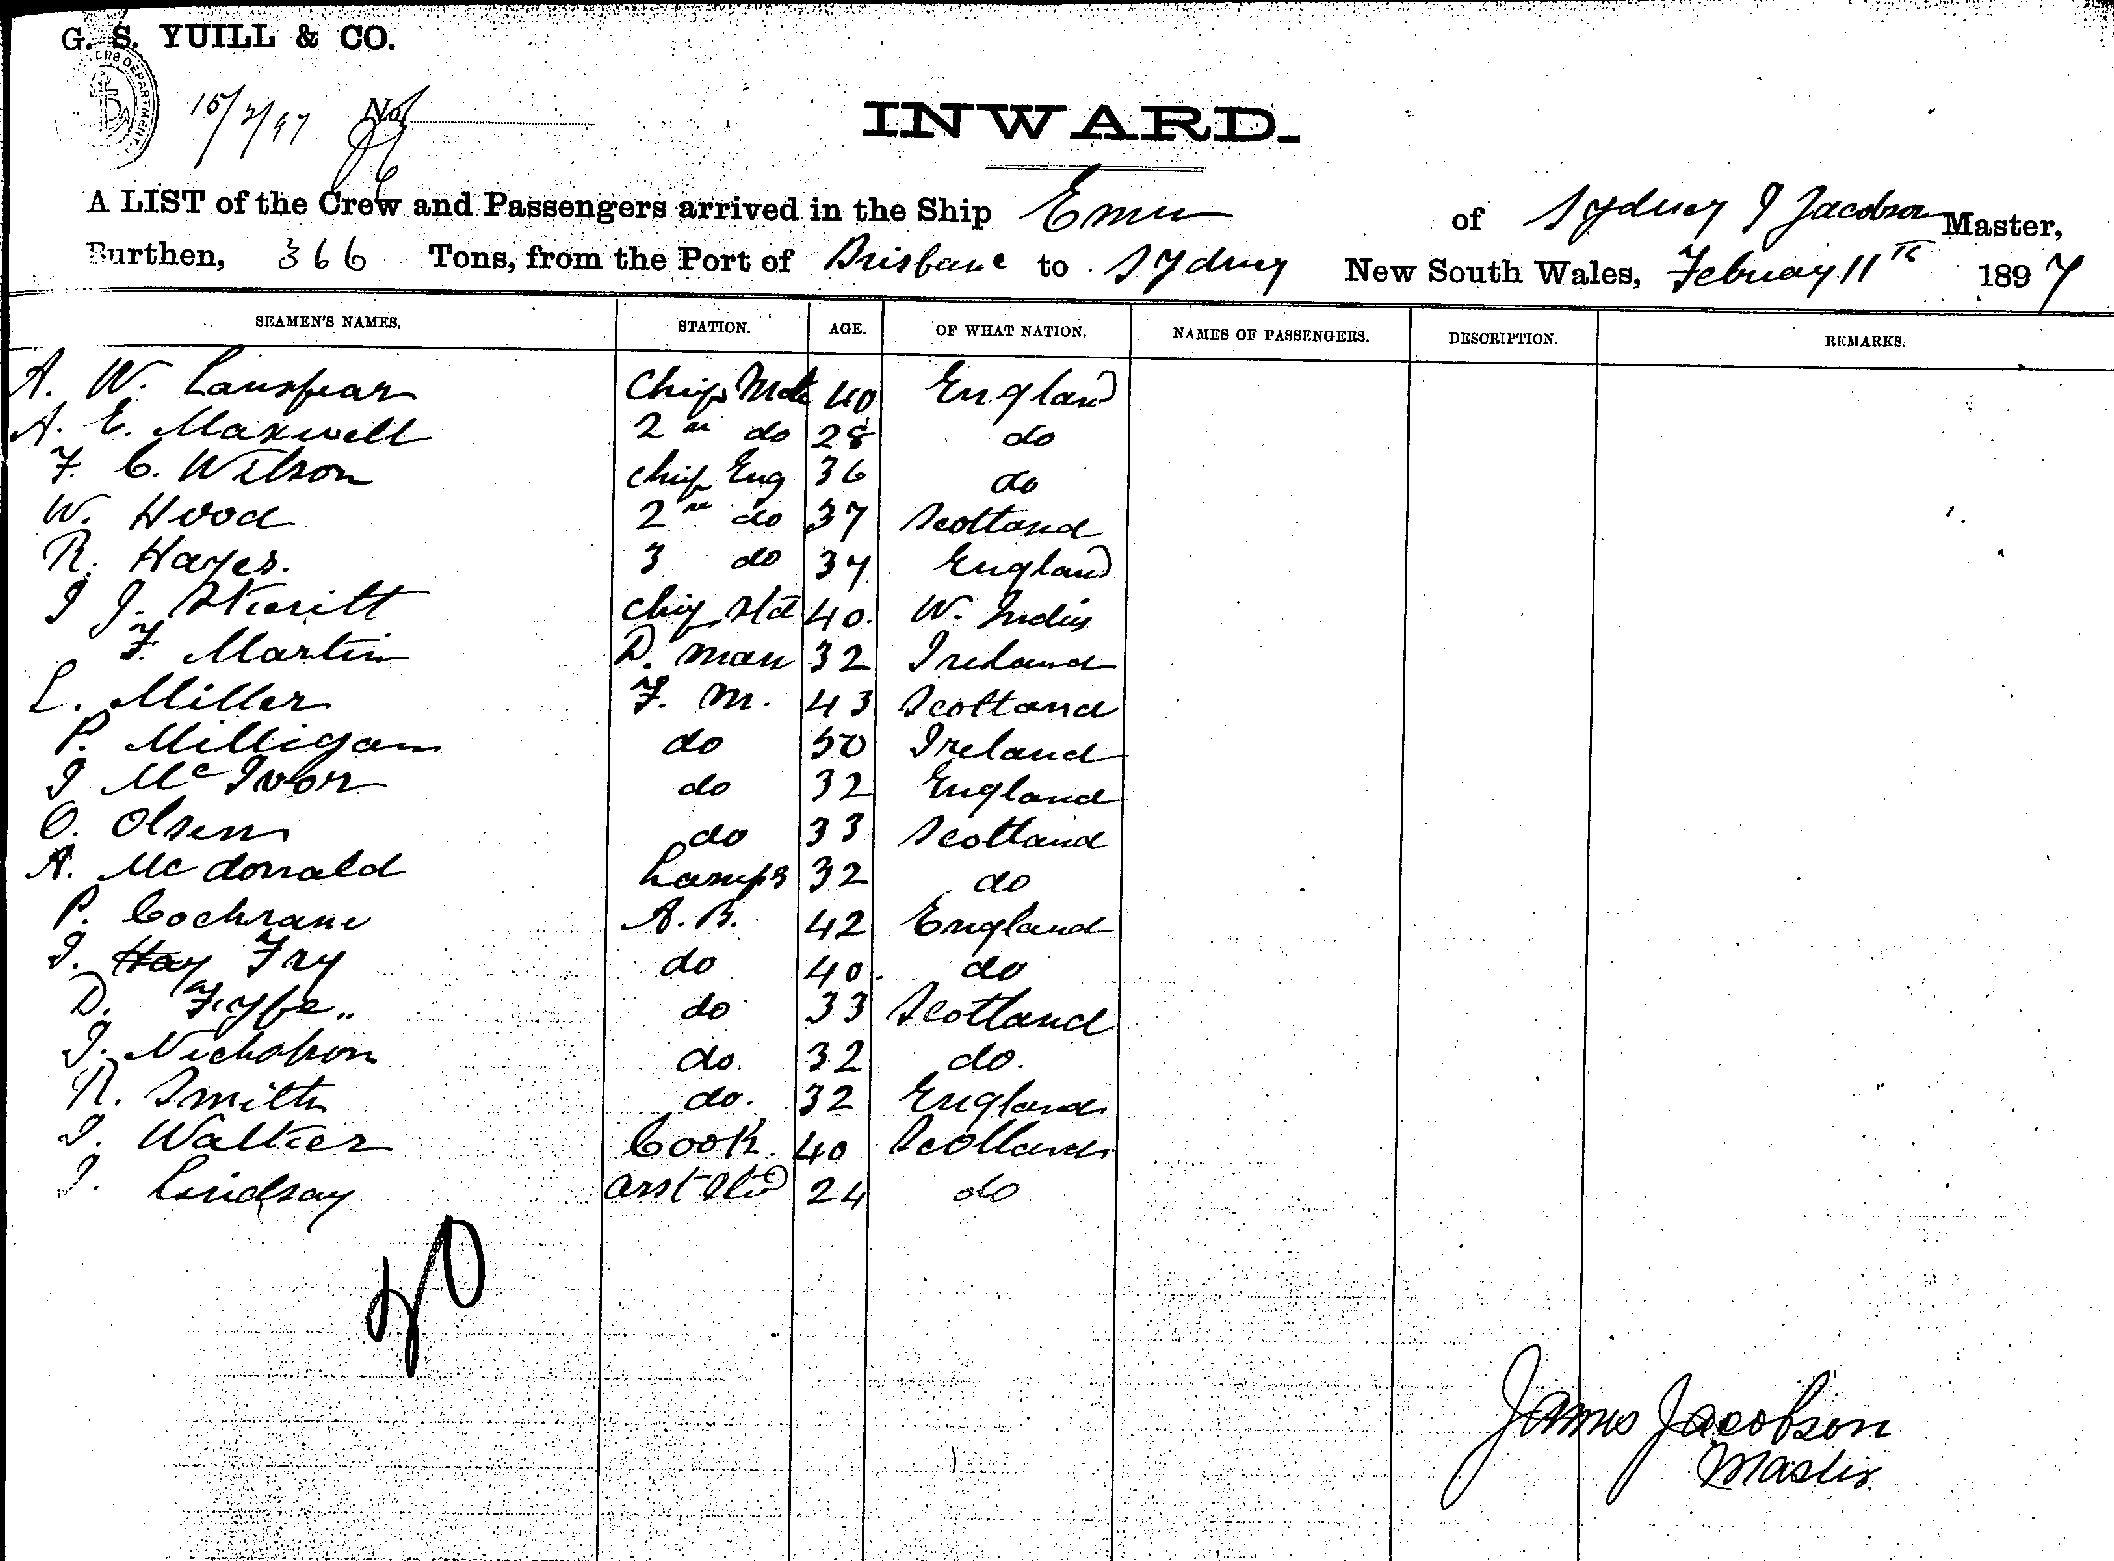 G. S. YUILL & CO.
15/2/97 No
INWARD.
A LIST of the Crew and Passengers arrived in the Ship Emu of Sydney J Jacobson Master,
Burthen, 366 Tons, from the Port of Brisbane to Sydney New South Wales, Februay 11th 1897
SEAMEN'S NAMES. STATION. AGE. OF WHAT NATION. NAMES OF PASSENGERS. DESCRIPTION. REMARKS.
A. W. Lanspear Chief Mate 40 England
A. E. Maxwell 2nd do 28 do
F. C. Wilson Chief Eng 36 do
W. Hood 2nd do 37 Scotland
R. Hayes. 3 do 37 England
J J. Skeritt Chief Std 40. W. Indies
F. Martin D. Man 32 Ireland
L. Miller F. M. 43 Scotland
P. Milligan do 50 Ireland
J McIvor do 32 England
O. Olsen do 33 Scotland
A. McDonald Lamps 32 do
P. Cochrane A. B. 42 England
J. Hay Fry do 40. do
D. Fyfe do 33 Scotland
J. Nicholson do. 32 do.
R. Smith do. 32 England
J. Walker Cook. 40 Scotland
J. Lindsay Asst Std 24 do
James Jacobson
Master